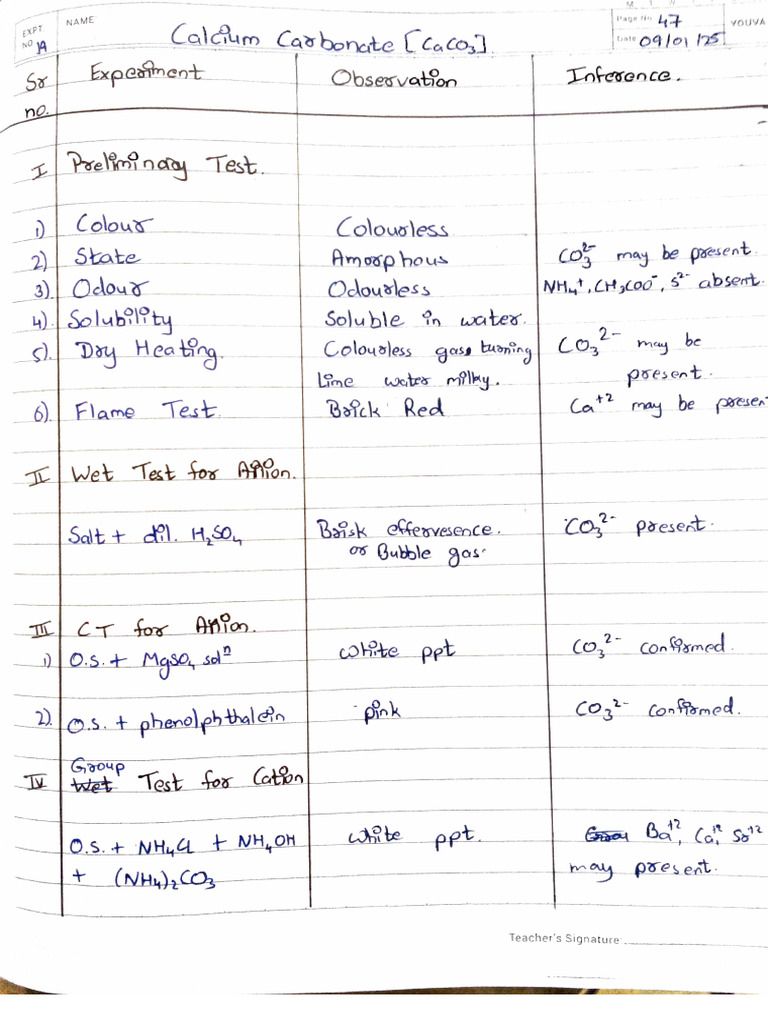 M T W
EXPT NO 19 NAME Calcium Carbonate [CaCO₃]. Page No 47 YOUVA
Date 09/01/25
Sr no. Experiment Observation Inference.
I Preliminary Test.
1) Colour Colourless
2) State Amorphous CO₃²⁻ may be present.
3). Odour Odourless NH₄⁺, CH₃COO⁻, S²⁻ absent.
4). Solubility Soluble in water.
5). Dry Heating. Colourless gas turning CO₃²⁻ may be
lime water milky. present.
6). Flame Test. Brick Red Ca⁺² may be present
II Wet Test for Anion.
Salt + dil. H₂SO₄ Brisk effervesence. CO₃²⁻ present.
or Bubble gas.
III CT for Anion.
1) O.S. + MgSO₄ solⁿ white ppt CO₃²⁻ confirmed.
2). O.S. + phenolphthalein pink CO₃²⁻ confirmed.
Group
IV Wet Test for Cation
O.S. + NH₄Cl + NH₄OH white ppt. Ba⁺², Ca⁺², Sr⁺²
+ (NH₄)₂CO₃ may present.
Teacher's Signature: